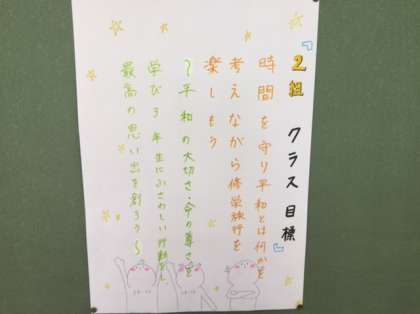 『2組 クラス目標』
時間を守り平和とは何かを
考えながら修学旅行を
楽しもう
~平和の大切さ・命の尊さを
学び3年生にふさわしい行動をし
最高の思い出を創ろう~